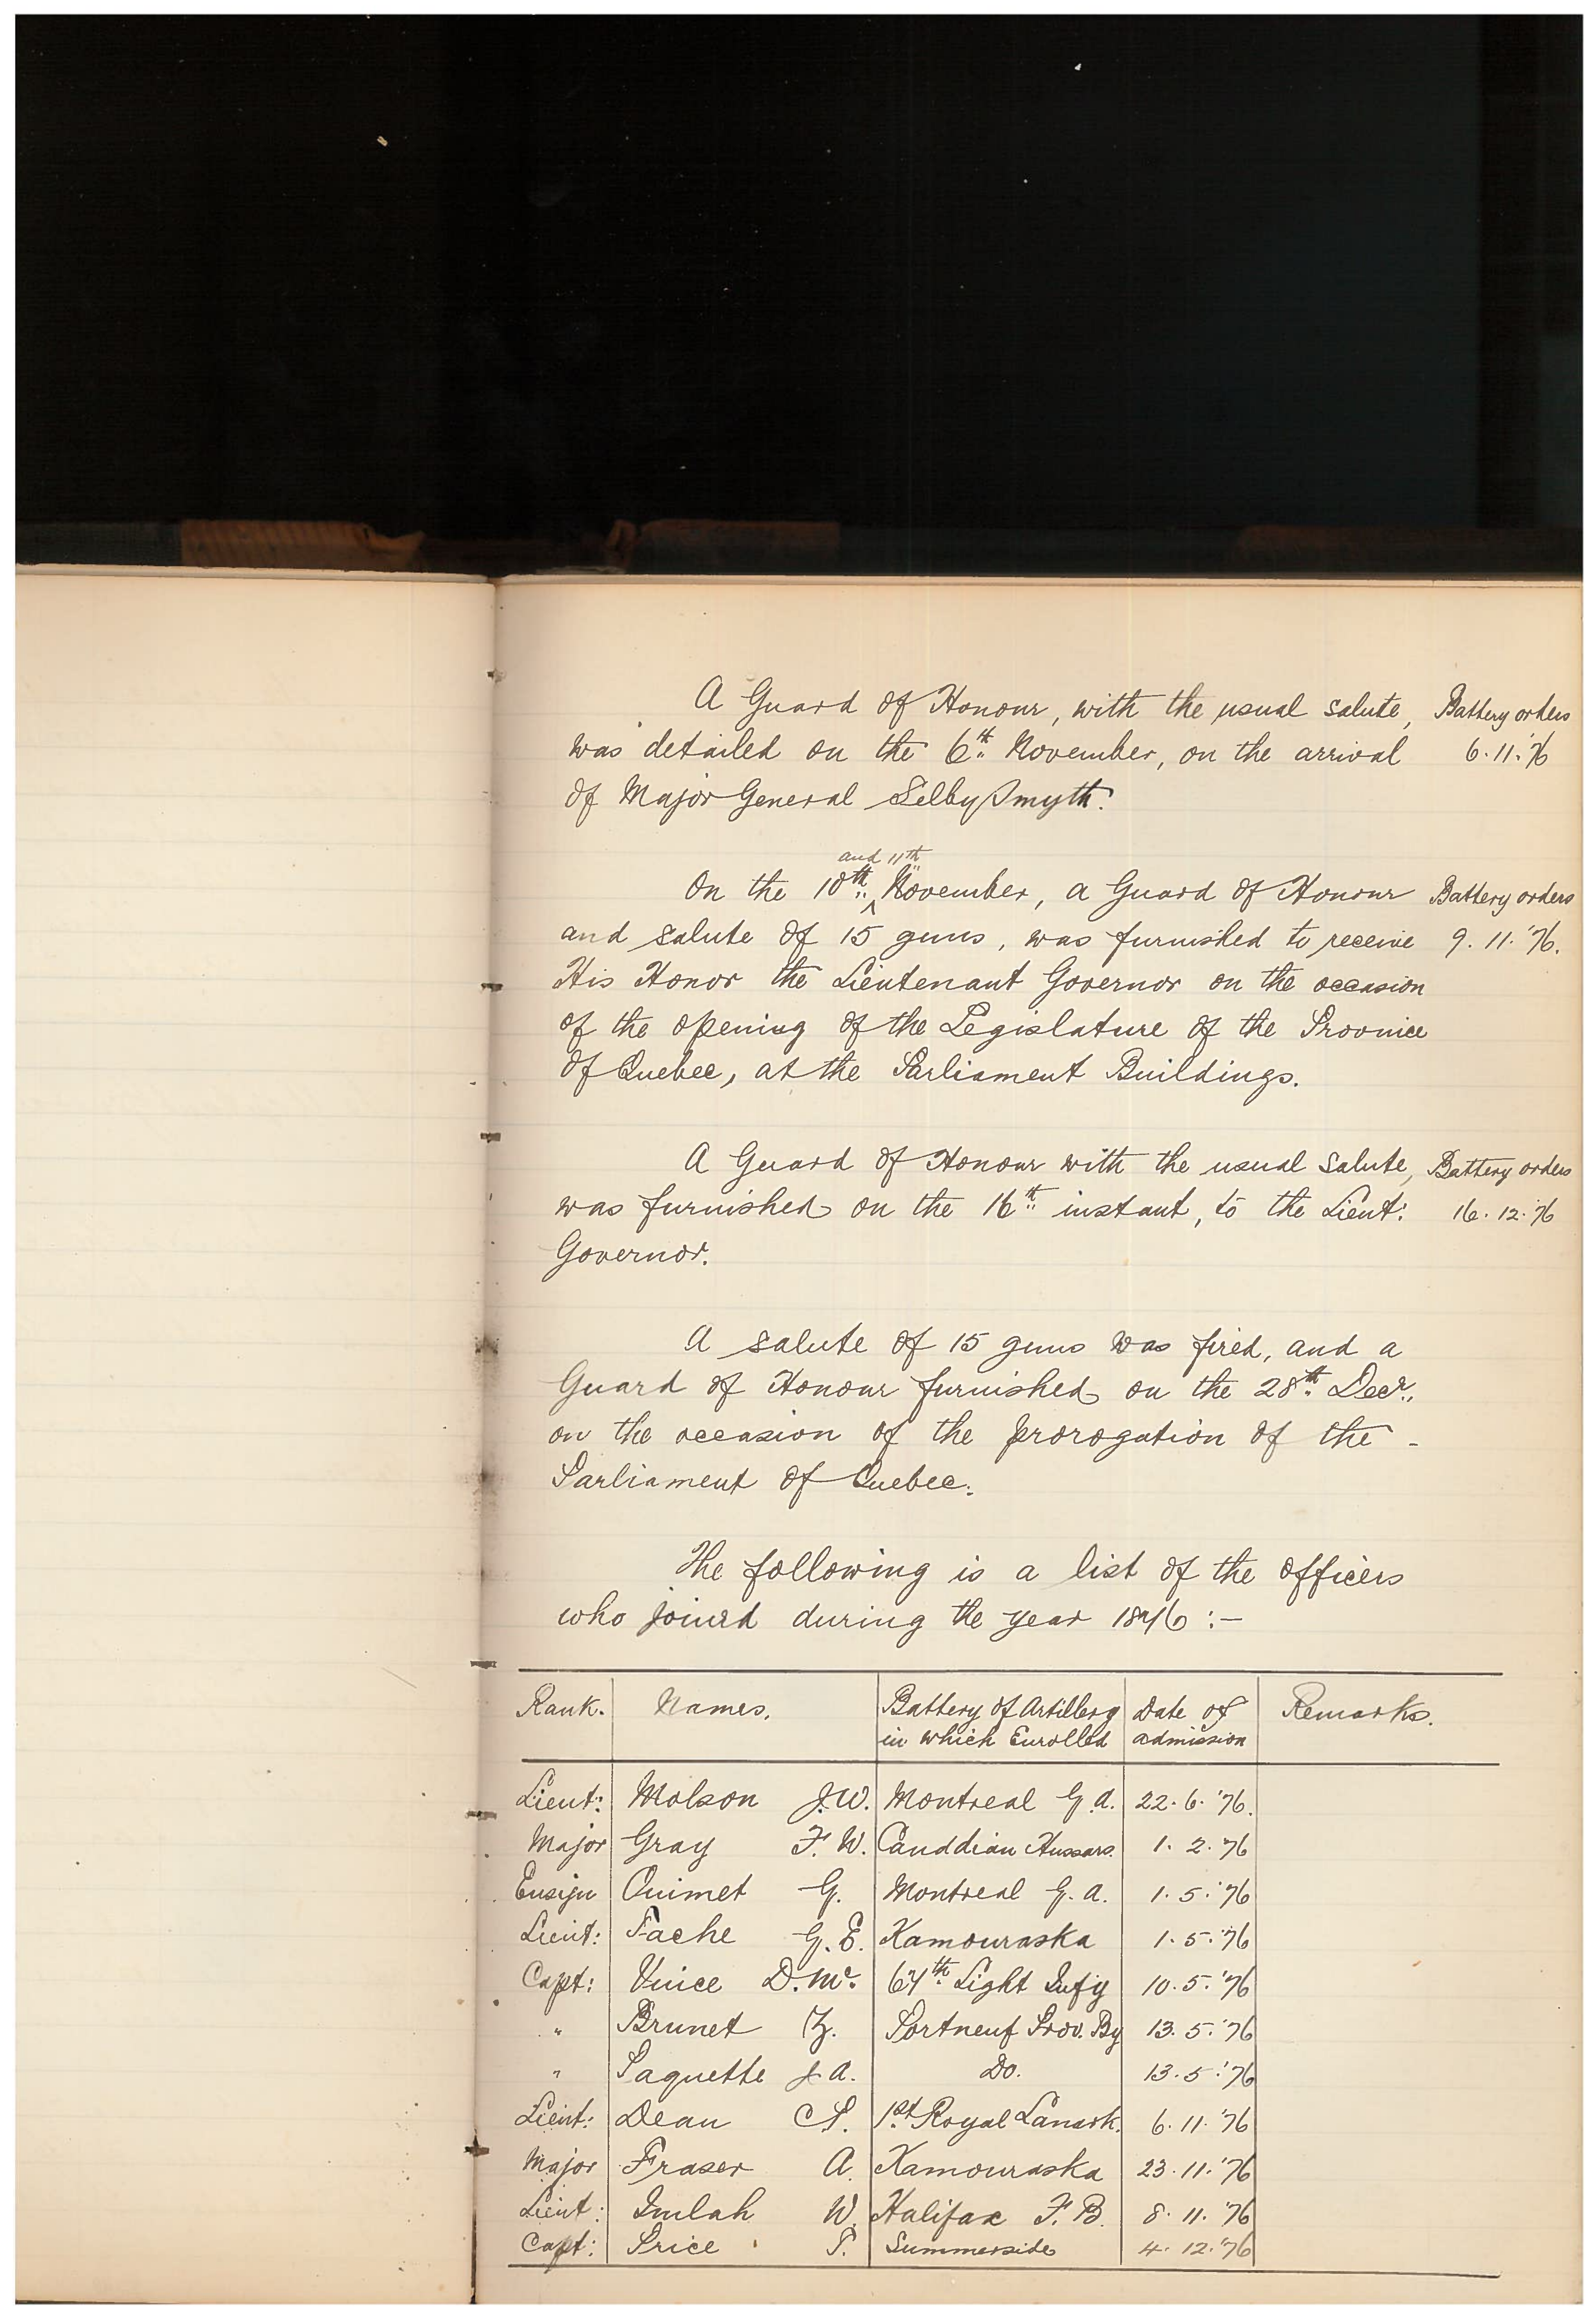 A Guard of Honour, with the usual salute, Battery orders
was detailed on the 6th November, on the arrival 6.11.'76
of Major General Selby Smyth.
and 11th
On the 10th November, a Guard of Honour Battery orders
and salute of 15 guns, was furnished to receive 9.11.'76.
His Honor the Lieutenant Governor on the occasion
of the opening of the Legislature of the Province
of Quebec, at the Parliament Buildings.
A Guard of Honour with the usual salute, Battery orders
was furnished on the 16th instant, to the Lieut: 16.12.'76
Governor.
A salute of 15 guns was fired, and a
Guard of Honour furnished on the 28th Decr.,
on the occasion of the prorogation of the -
Parliament of Quebec.
The following is a list of the officers
who joined during the year 1876 :-
Rank. Names. Battery of Artillery Date of Remarks.
in which Enrolled admission
Lieut: Molson J.W. Montreal G.A. 22.6.'76.
Major Gray F.W. Canddian Hussars. 1.2.'76
Ensign Ouimet G. Montreal G.A. 1.5.'76
Lieut: Fache G.E. Kamouraska 1.5.'76
Capt: Vince D.Mc. 67th Light Infy 10.5.'76
" Brunet Z. Portneuf Prov. By 13.5.'76
" Paquette J.A. Do. 13.5.'76
Lieut: Dean C.P. 1st Royal Lanark. 6.11.'76
Major Fraser A. Kamouraska 23.11.'76
Lieut: Imlah W. Halifax F.B. 8.11.'76
Capt: Price T. Summerside 4.12.'76